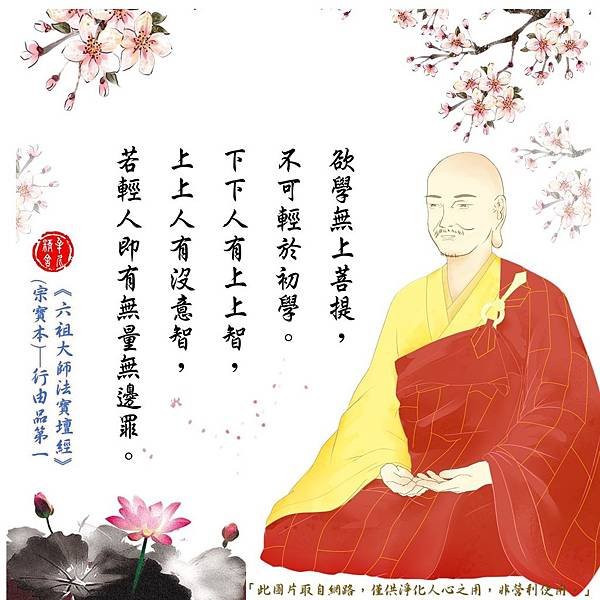 欲學無上菩提，
不可輕於初學。
下下人有上上智，
上上人有沒意智，
若輕人即有無量無邊罪。
《六祖大師法寶壇經》
(宗寶本)—行由品第一
「此圖片取自網路，僅供淨化人心之用，非營利使用。」